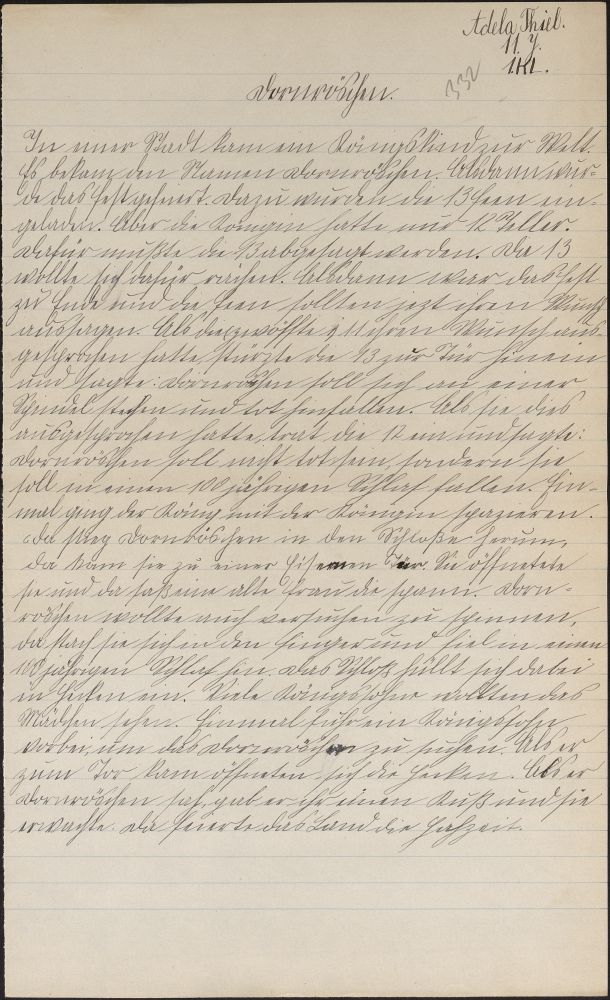 Adela Thiel.
11. J.
332
Dornröschen.
In einer Stadt kam ein Königskind zur Welt.
Es bekam den Namen Dornröschen. Alsdann wur-
de das Fest gefeiert. Dazu wurden die 13 Feen ein-
geladen. Aber die Königin hatte nur 12 Teller.
Dafür mußte die 13 abgesagt werden. Da 13
wollte sich dafür rächen. Alsdann war das Fest
zu Ende und die Feen sollten jezt ihren Wunsch
aussagen. Als die 11 ihren Wunsch aus-
gesprochen hatte, stürzte die 13 zur Tür hinein
und sagte: Dornröschen soll sich an einer
Spindel stechen und tot hinfallen. Als sie dies
ausgesprochen hatte, trat die 12 ein und sagte:
Dornröschen soll nicht tot sein, sondern sie
soll in einen 100 jährigen Schlaf fallen. Ein-
mal ging der König mit der Königin spazieren.
Da stieg Dornröschen in den Schloße herum,
da kam sie zu einer Eisernen Tür. Sie öffnetete
sie und da saß eine alte Frau die spann. Dorn-
röschen wollte auch versuchen zu spinnen,
da stach sie sich in den Finger und fiel in einen
100 jährigen Schlaf hin. Das Schloß hüllt sich dabei
in Hecken ein. Viele Königssöhne wollten das
Mädchen sehen. Einmal fuhr ein Königssohn
vorbei, um das Dornröschen zu suchen. Als er
zum Tor kam öffneten sich die Hecken. Als er
Dornröschen sah, gab er ihr einen Kuß und sie
erwachte. Da feierte das Land die Hochzeit.